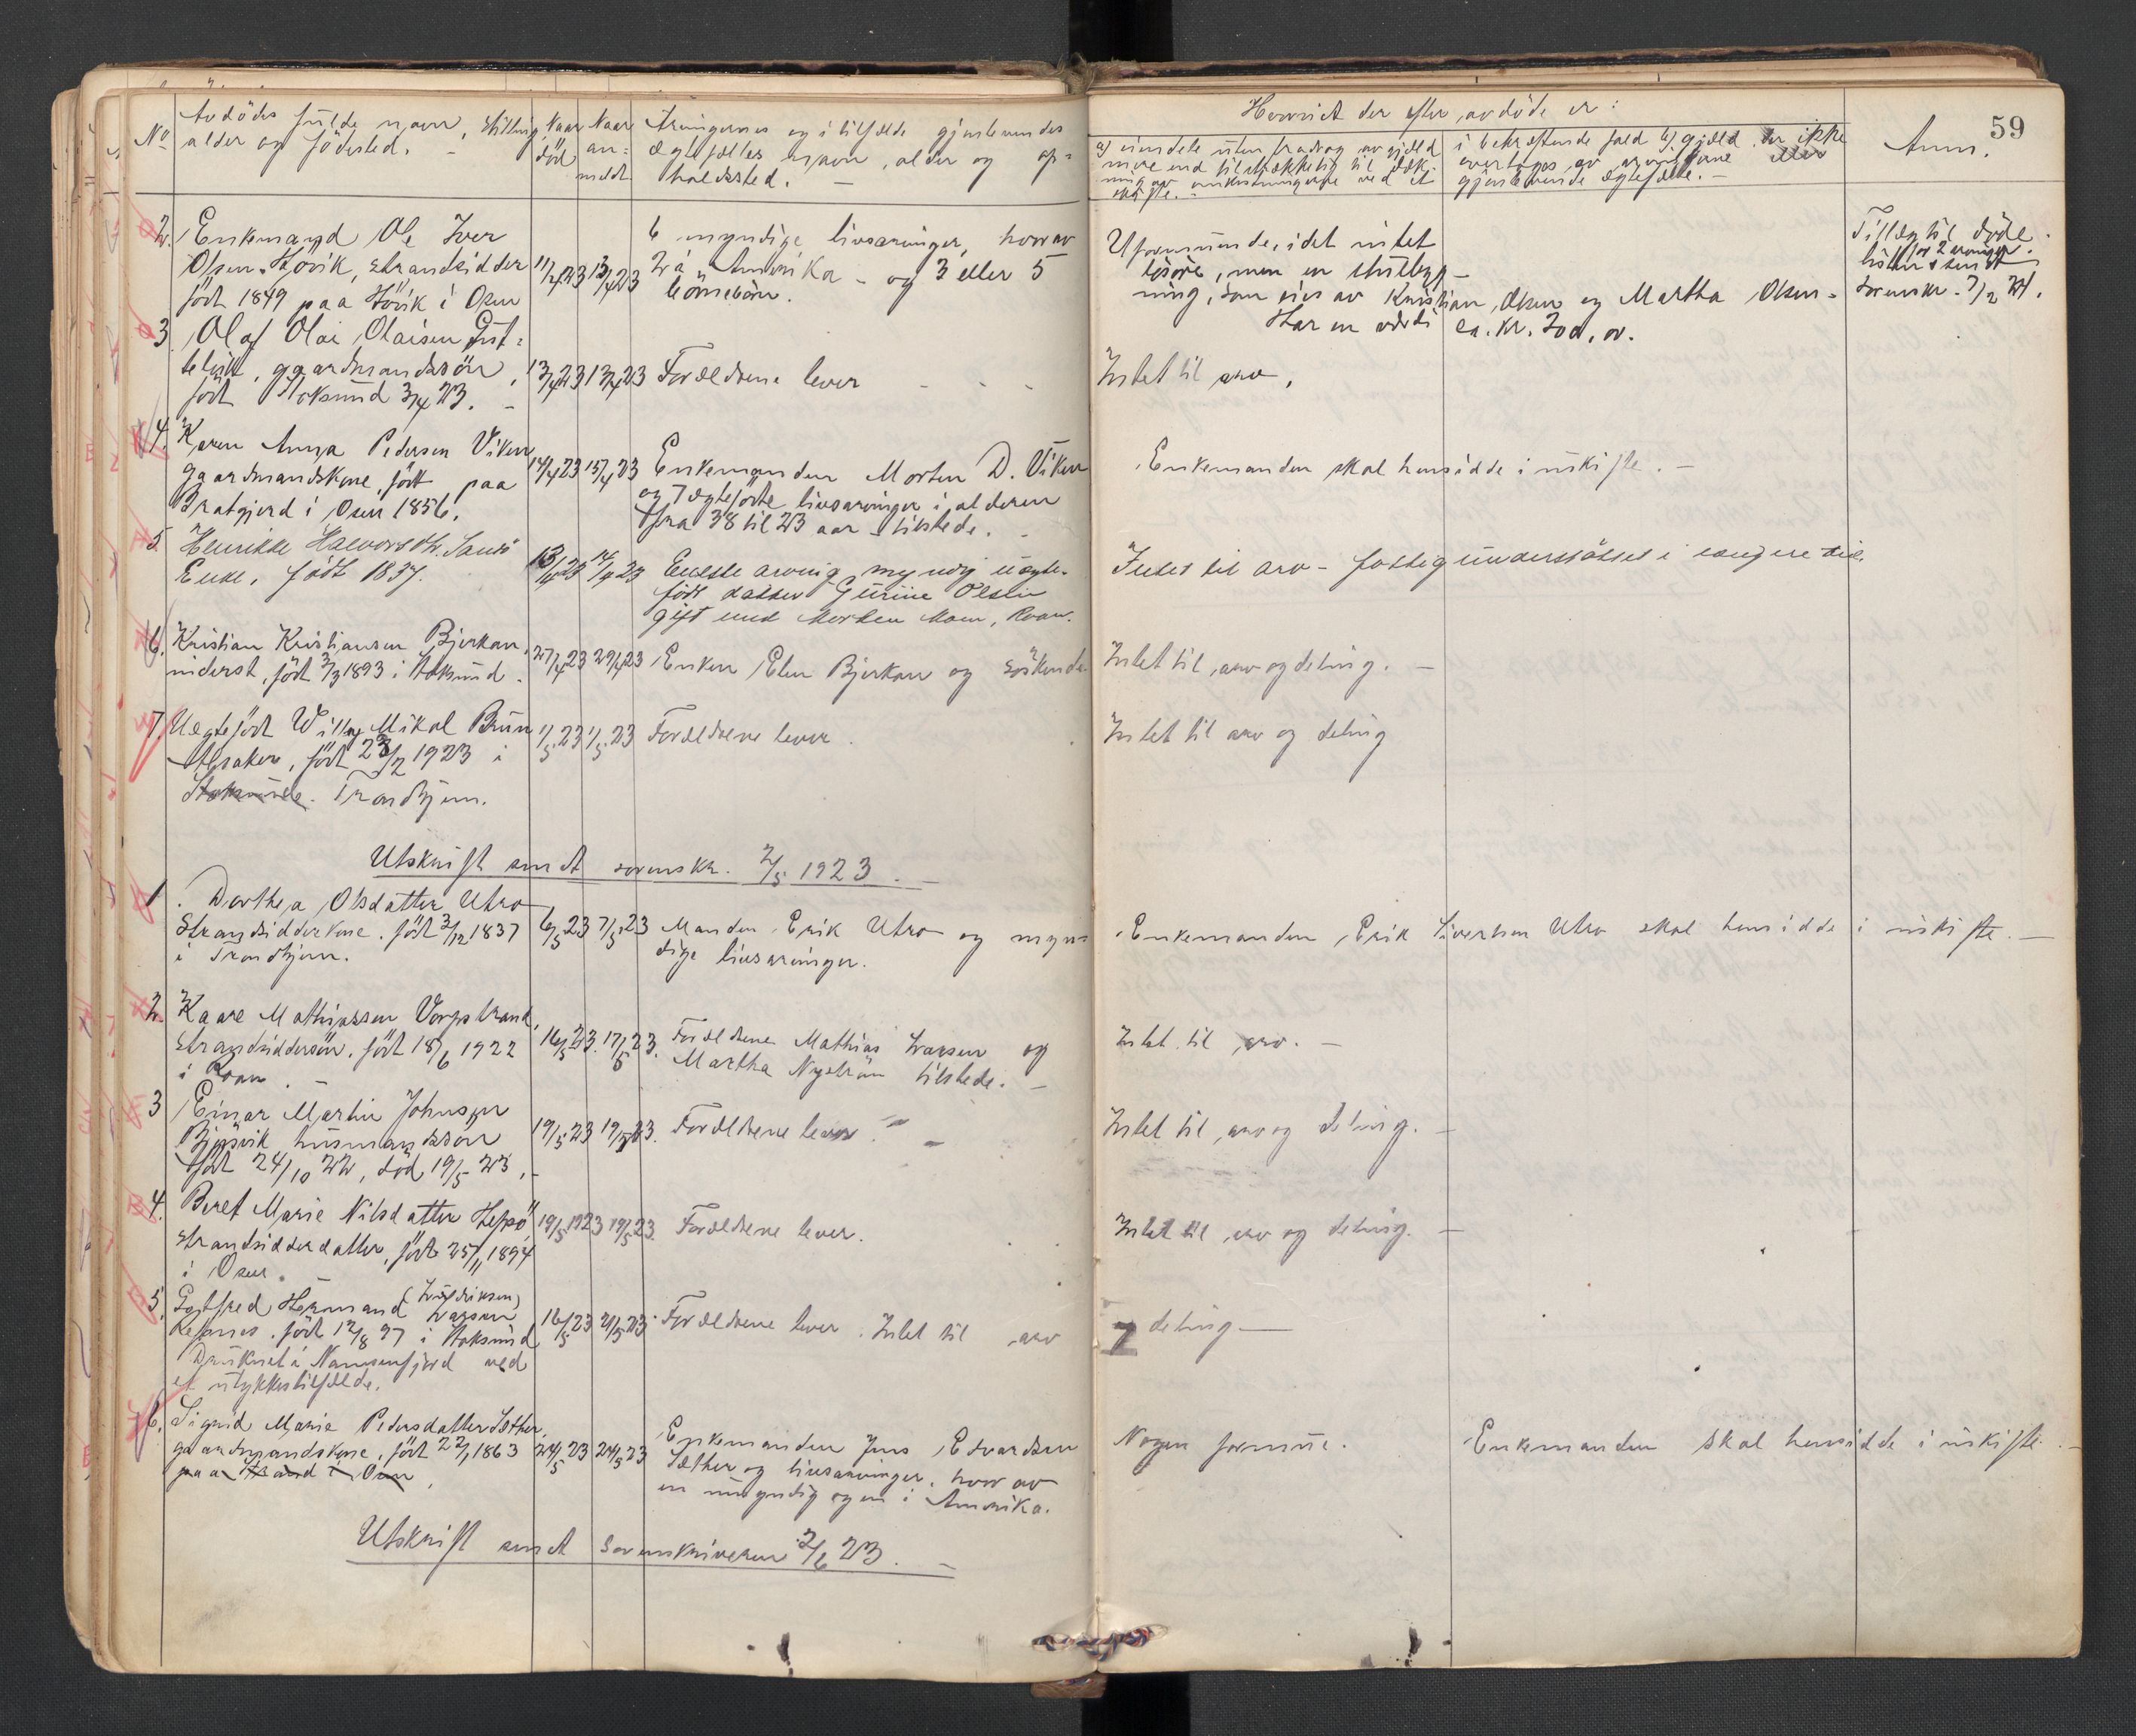 No
Avdödes fulde navn, Stilling,
alder og födested.
Naar
död
Naar
an=
meldt
Arvingernes og i tilfælde gjenlevendes
Ægtefælles navn, alder og op=
holdssted. -
Hvorvidt der efter avdöde er:
a) eiendele uten fradrag av gjæld
mere end tilstrækkelig til dæk-
ning av omkostningerne ved et
skifte. -
i bekræftende fald b) gjæld der ikke
overtages av arvingerne eller
gjenlevende ægtefælle. -
Anm.
59
2. Enkemand Ole Iver
Olsen Hövik, strandsidder
födt 1849 paa Hövik i Osen
11/4 23
13/4 23
6 myndige livsarvinger, hvorav
2 i Amerika - og 3 eller 5
börnebörn.
Uformuende, idet intet
lösöre, men en stuebyg-
ning, som eies av Kristian Olsen og Martha Olsen -
Har en værdi ca. kr. 200,00.
Tillæg til döde
for 2 arvinger
listen sendt
sorenskr. 7/2 24.
3 Olaf Olai Olaisen
gaardmandssön,
födt Stoksund 3/4 23. -
13/4 23
13/4 23
Forældrene lever - - -
Intet til arv,
4. Karen Anna Pedersen Viken
gaardmandskone, födt paa
Bratgjerd i Osen 1856.
14/4 23
15/4 23
Enkemanden Morten D. Viken
og 7 ægtefödte livsarvinger i alderen
fra 38 til 23 aar - tilstede. -
Enkemanden skal hensidde i uskifte. -
5 Henrikke Halvorsdtr. Sandö
Enke, födt 1837.
13/4 23
14/4 23
Eneste arving myndig uægte-
födt datter Gurine Olsen
gift med Morten Moen, Roan.
Intet til arv - fattigunderstöttet i længere tid.
6. Kristian Kristiansen Bjerkan,
inderst, födt 2/3 1893 i Stoksund.
27/4 23
29/4 23
Enken Elen Bjerkan og söskende
Intet til arv og deling. -
7. Uægtefödt Willy Mikal Bruun
födt 23/2 1923 i
Stoksund. Trondhjem.
1/5 23
1/5 23
Forældrene lever.
Intet til arv og deling
Utskrift sendt sorenskr. 2/5 1923. -
1. Dorthea Olsdatter Utro
Strandsidderkone. födt 3/12 1837
i Trondhjem.
6/5 23
7/5 23
Manden Erik Utro og myn=
dige livsarvinger.
Enkemanden Erik Sivertsen Utro skal hensidde i uskifte. -
2. Kaare Mathiassen Vorpstrand,
strandsiddersön. födt 18/6 1922
i Roan. -
16/5 23.
17/5 23.
Forældrene Mathias Larsen og
Martha Nyström tilstede. -
Intet til arv. -
3 Einar Martin Johnsen
husmandssön
födt 24/10 22, död 19/5 23, -
19/5 23
19/5 23.
Forældrene lever. -
Intet til arv og deling. -
4. Beret Marie Nilsdatter Hepsö
strandsidderdatter, födt 25/11 1894
i Osen.
19/5 1923
19/5 23.
Forældrene lever.
Intet til arv og deling. -
5. Gotfred Hermand Larsen
födt 12/8 97 i Stoksund
Druknet i Namsenfjord ved
et ulykkestilfælde.
16/5 23
21/5 23.
Forældrene lever. Intet til arv
deling -
6. Sigrid Marie Pedersdatter Sæther,
gaardmandskone, födt 22/1 1863
paa Strand i Osen,
24/5 23
24/5 23
Enkemanden Jens Edvardsen
Sæther og livsarvinger, hvorav
en umyndig og en i Amerika.
Nogen formue.
Enkemanden skal hensidde i uskifte. -
Utskrift sendt sorenskriveren 2/6 23. -